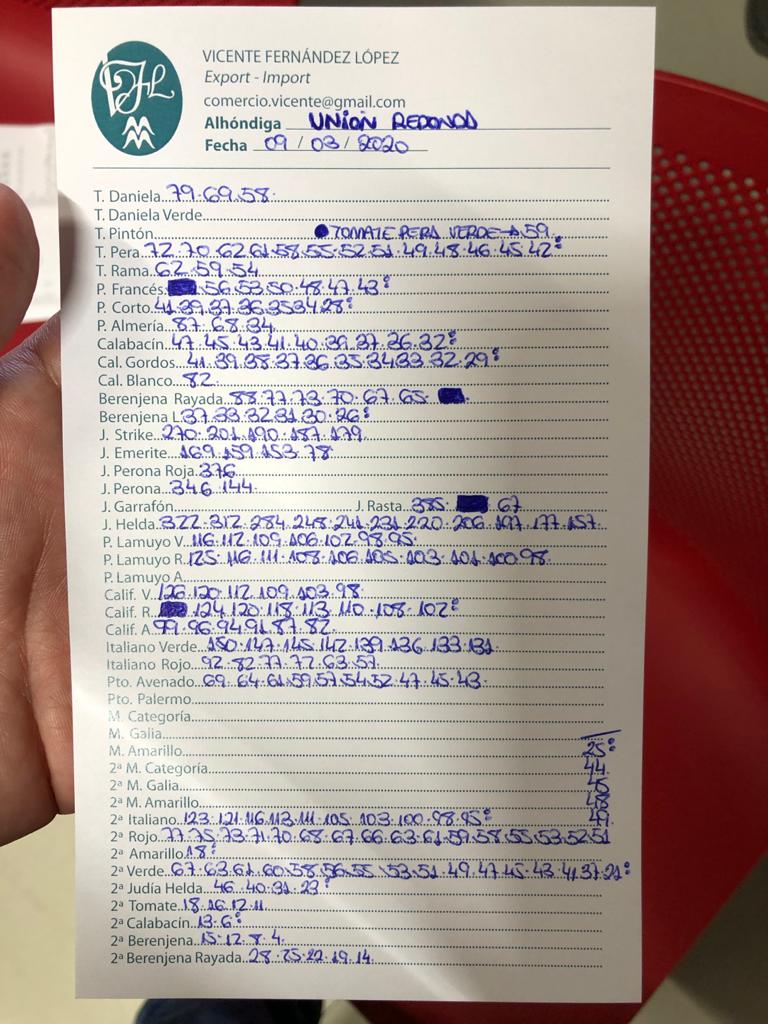 VICENTE FERNÁNDEZ LÓPEZ
Export - Import
comercio.vicente@gmail.com
Alhóndiga UNION REDONDA
Fecha 09 / 03 / 2020
T. Daniela 79.69.58.
T. Daniela Verde
T. Pintón TOMATE PERA VERDE → 59.
T. Pera 72.70.62.61.58.55.52.51.49.48.46.45.42:
T. Rama 62.59.54
P. Francés 56.53.50.48.47.43:
P. Corto 41.39.37.36.35.34.28:
P. Almería 87.68.34.
Calabacín 47.45.43.41.40.39.37.36.32:
Cal. Gordos 41.39.38.37.36.35.34.33.32.29:
Cal. Blanco 82.
Berenjena Rayada 88.77.73.70.67.65.
Berenjena L 37.33.32.31.30.26:
J. Strike 270.201.190.187.179.
J. Emerite 169.159.153.78
J. Perona Roja 376
J. Perona 346.144.
J. Garrafón J. Rasta 385. 67
J. Helda 322.312.284.248.241.231.220.206.197.177.157.
P. Lamuyo V. 116.112.109.106.102.98.95.
P. Lamuyo R. 125.116.111.108.106.105.103.101.100.98.
P. Lamuyo A.
Calif. V. 126.120.112.109.103.98.
Calif. R. 124.120.118.113.110.108.102:
Calif. A. 99.96.94.91.87.82.
Italiano Verde 150.147.145.142.139.136.133.131.
Italiano Rojo 92.82.77.72.63.57.
Pto. Avenado 69.64.61.59.57.54.52.47.45.43.
Pto. Palermo
M. Categoría
M. Galia
M. Amarillo 25:
2ª M. Categoría 44.
2ª M. Galia 45
2ª M. Amarillo 48
2ª Italiano 123.121.116.113.111.105.103.100.98.95: 49.
2ª Rojo 77.75.73.71.70.68.67.66.63.61.59.58.55.53.52.51
2ª Amarillo 18:
2ª Verde 67.63.61.60.58.56.55.53.51.49.47.45.43.41.37.21:
2ª Judía Helda 46.40.31.23:
2ª Tomate 18.16.12.11.
2ª Calabacín 13.6:
2ª Berenjena 15.12.8.4.
2ª Berenjena Rayada 28.25.22.19.14.